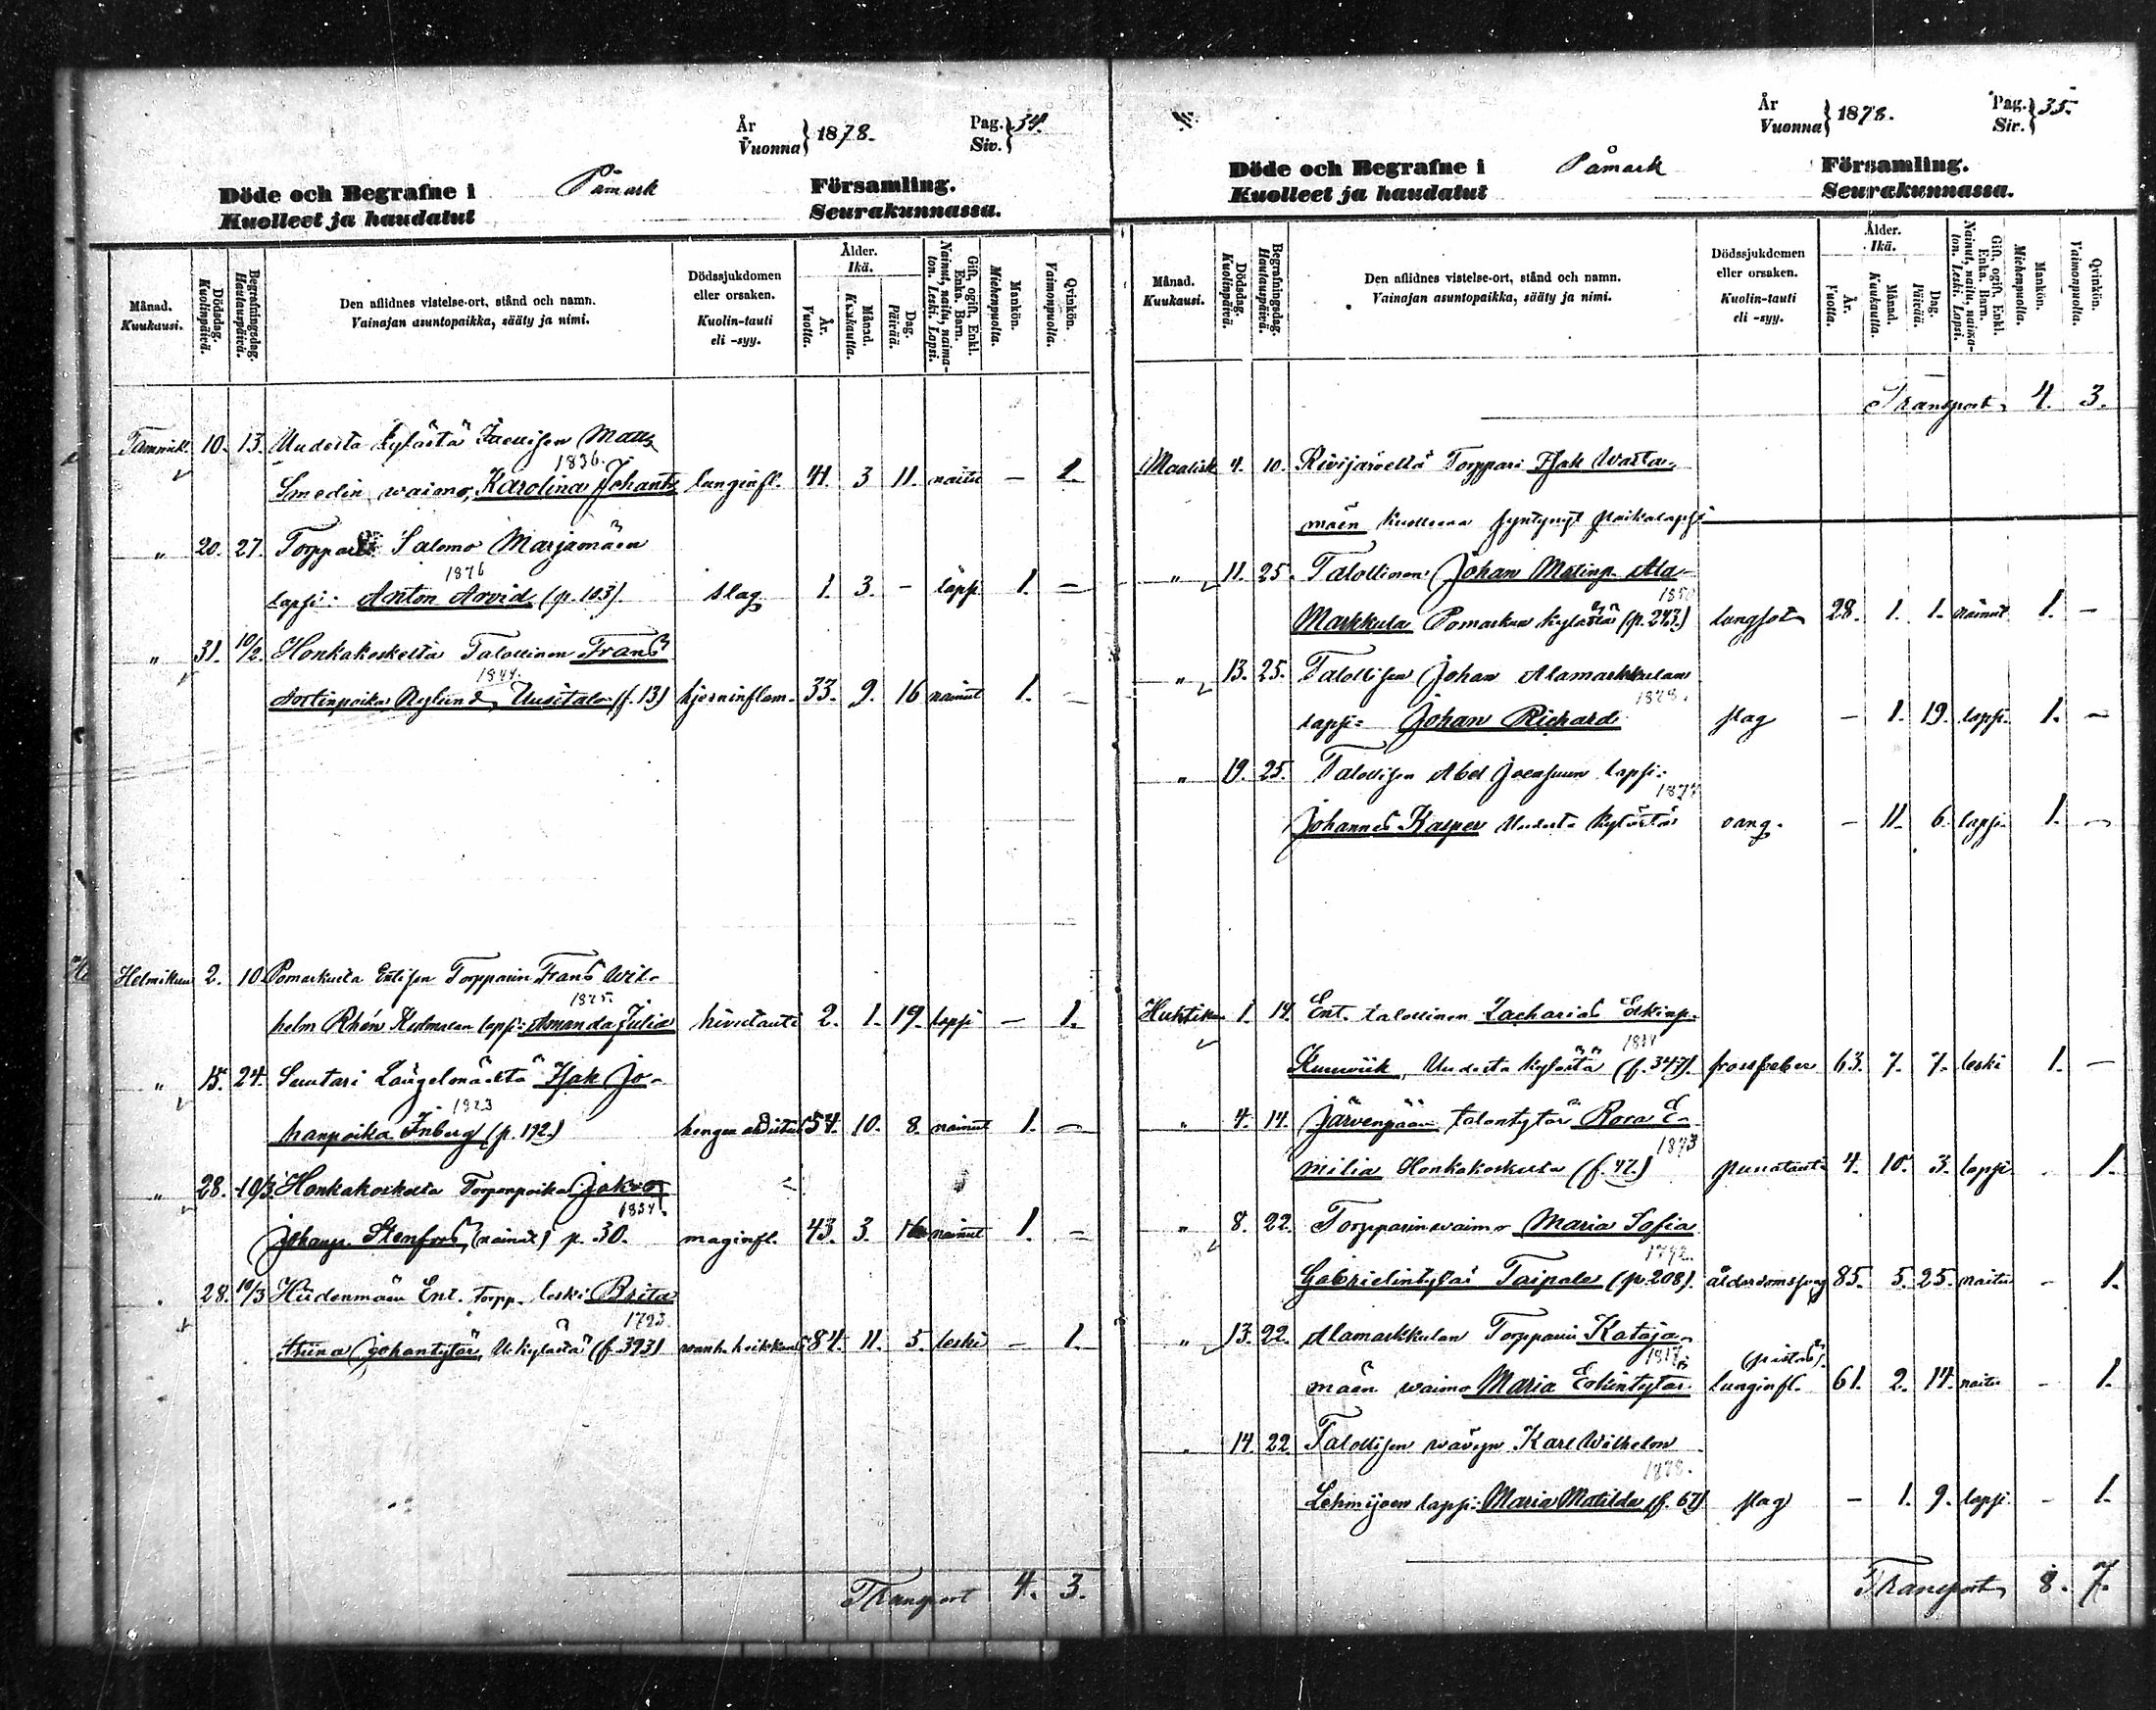 År
Vuonna } 1878.
Pag.
Siv. } 34.
Döde och Begrafne i Påmark Församling.
Kuolleet ja haudatut Seurakunnassa.
Månad. Kuukausi.
Dödsdag. Kuolinpäivä.
Begrafningsdag. Hautauspäivä.
Den aflidnes vistelse-ort, stånd och namn.
Vainajan asuntopaikka, sääty ja nimi.
Dödssjukdomen eller orsaken.
Kuolin-tauti eli -syy.
Ålder. Ikä.
År. Vuotta.
Månad. Kuukautta.
Dag. Päivää.
Gift, ogift, Enkl. Enka. Barn.
Nainut, naitu, naimaton. Leski. Lapsi.
Mankön. Miehenpuolta.
Qvinkön. Vaimonpuolta.
Tammik. 10. 13. Uudesta kylästä Matts
1836.
Smedin waimo, Karolina Johants lunginfl. 41. 3 11. naitu — 1.
„ 20. 27. Torppari Salomo Marjamäen
1876
lapsi: Anton Arvid (p. 103). slag 1. 3. - laps. 1. —
„ 31. 10/2. Honkakoskelta Talollinen Frans
1844.
Uusitalo (f. 13) hjerninflam. 33. 9. 16 nainut 1. —
Helmikuu 2. 10 Pomarkusta Entisen Torpparin Frans Wil-
1875.
helm Rhén lapsi: Amanda Julia 2. 1. 19. lapsi — 1.
„ 15. 24. Suutari Längelmäeltä Isak Jo-
1823
hanpoika Inberg (p. 192.) 54. 10. 8. nainut 1. —
„ 28. 10/3 Honkakoskelta Torpanpoika Jakob
1834.
Johanp. Stenfors, (nainut) p. 30. maginfl. 43. 3. 16 nainut 1. —
28. 10/3 Hiidenmäen Ent. torpp. leski Brita
1793.
Stiina Johantytär, U.kylästä (f. 393) wanh. heikkous 84. 11. 5. leski — 1.
Transport 4. 3.
År
Vuonna } 1878.
Pag.
Siv. } 35.
Döde och Begrafne i Påmark Församling.
Kuolleet ja haudatut Seurakunnassa.
Månad. Kuukausi.
Dödsdag. Kuolinpäivä.
Begrafningsdag. Hautauspäivä.
Den aflidnes vistelse-ort, stånd och namn.
Vainajan asuntopaikka, sääty ja nimi.
Dödssjukdomen eller orsaken.
Kuolin-tauti eli -syy.
Ålder. Ikä.
År. Vuotta.
Månad. Kuukautta.
Dag. Päivää.
Gift, ogift, Enkl. Enka. Barn.
Nainut, naitu, naimaton. Leski. Lapsi.
Mankön. Miehenpuolta.
Qvinkön. Vaimonpuolta.
Transport 4. 3.
Maalisk 4. 10. Torppari Isak Wasta-
mäen kuolleena syntynyt poikalapsi
„ 11. 25. Talollinen Johan Matinp. Ala-
1850
Markkula Pomarkun kylästä (p. 243.) lungsot 28. 1. 1. nainut 1. —
„ 13. 25. Talollisen Johan Alamarkkulan
1878.
lapsi: Johan Richard slag — 1. 19. lapsi. 1. —
„ 19. 25. Talollisen Abel Joensuun lapsi:
1877
Johannes Kasper Uudesta kylästä — 11. 6. lapsi. 1. —
Huhtikuu 1. 14. Ent. talollinen Zacharias Erkinp.
1814
Uudesta kylästä (f. 347). frossfeber 63. 7. 7. leski 1. —
„ 4. 14. Järvenpään talontytär Rosa E-
1873
milia Honkakoskelta (f. 47.) punatauti 4. 10. 3. lapsi . 1.
„ 8. 22. Torpparin waimo Maria Sofia
1792.
Gabrielintytär Taipale (p. 208). 85. 5. 25. naitu — 1.
„ 13. 22. Alamarkkulan Torpparin Kataja-
1817.
mäen waimo Maria Erkintytär (pistos). lunginfl. 61. 2. 14. naitu — 1.
„ 14. 22. Talollisen wävyn Karl Wilhelm
1878.
Lehmijoen lapsi: Maria Matilda (f. 67) slag — 1. 9. lapsi — 1.
Transport 8. 7.